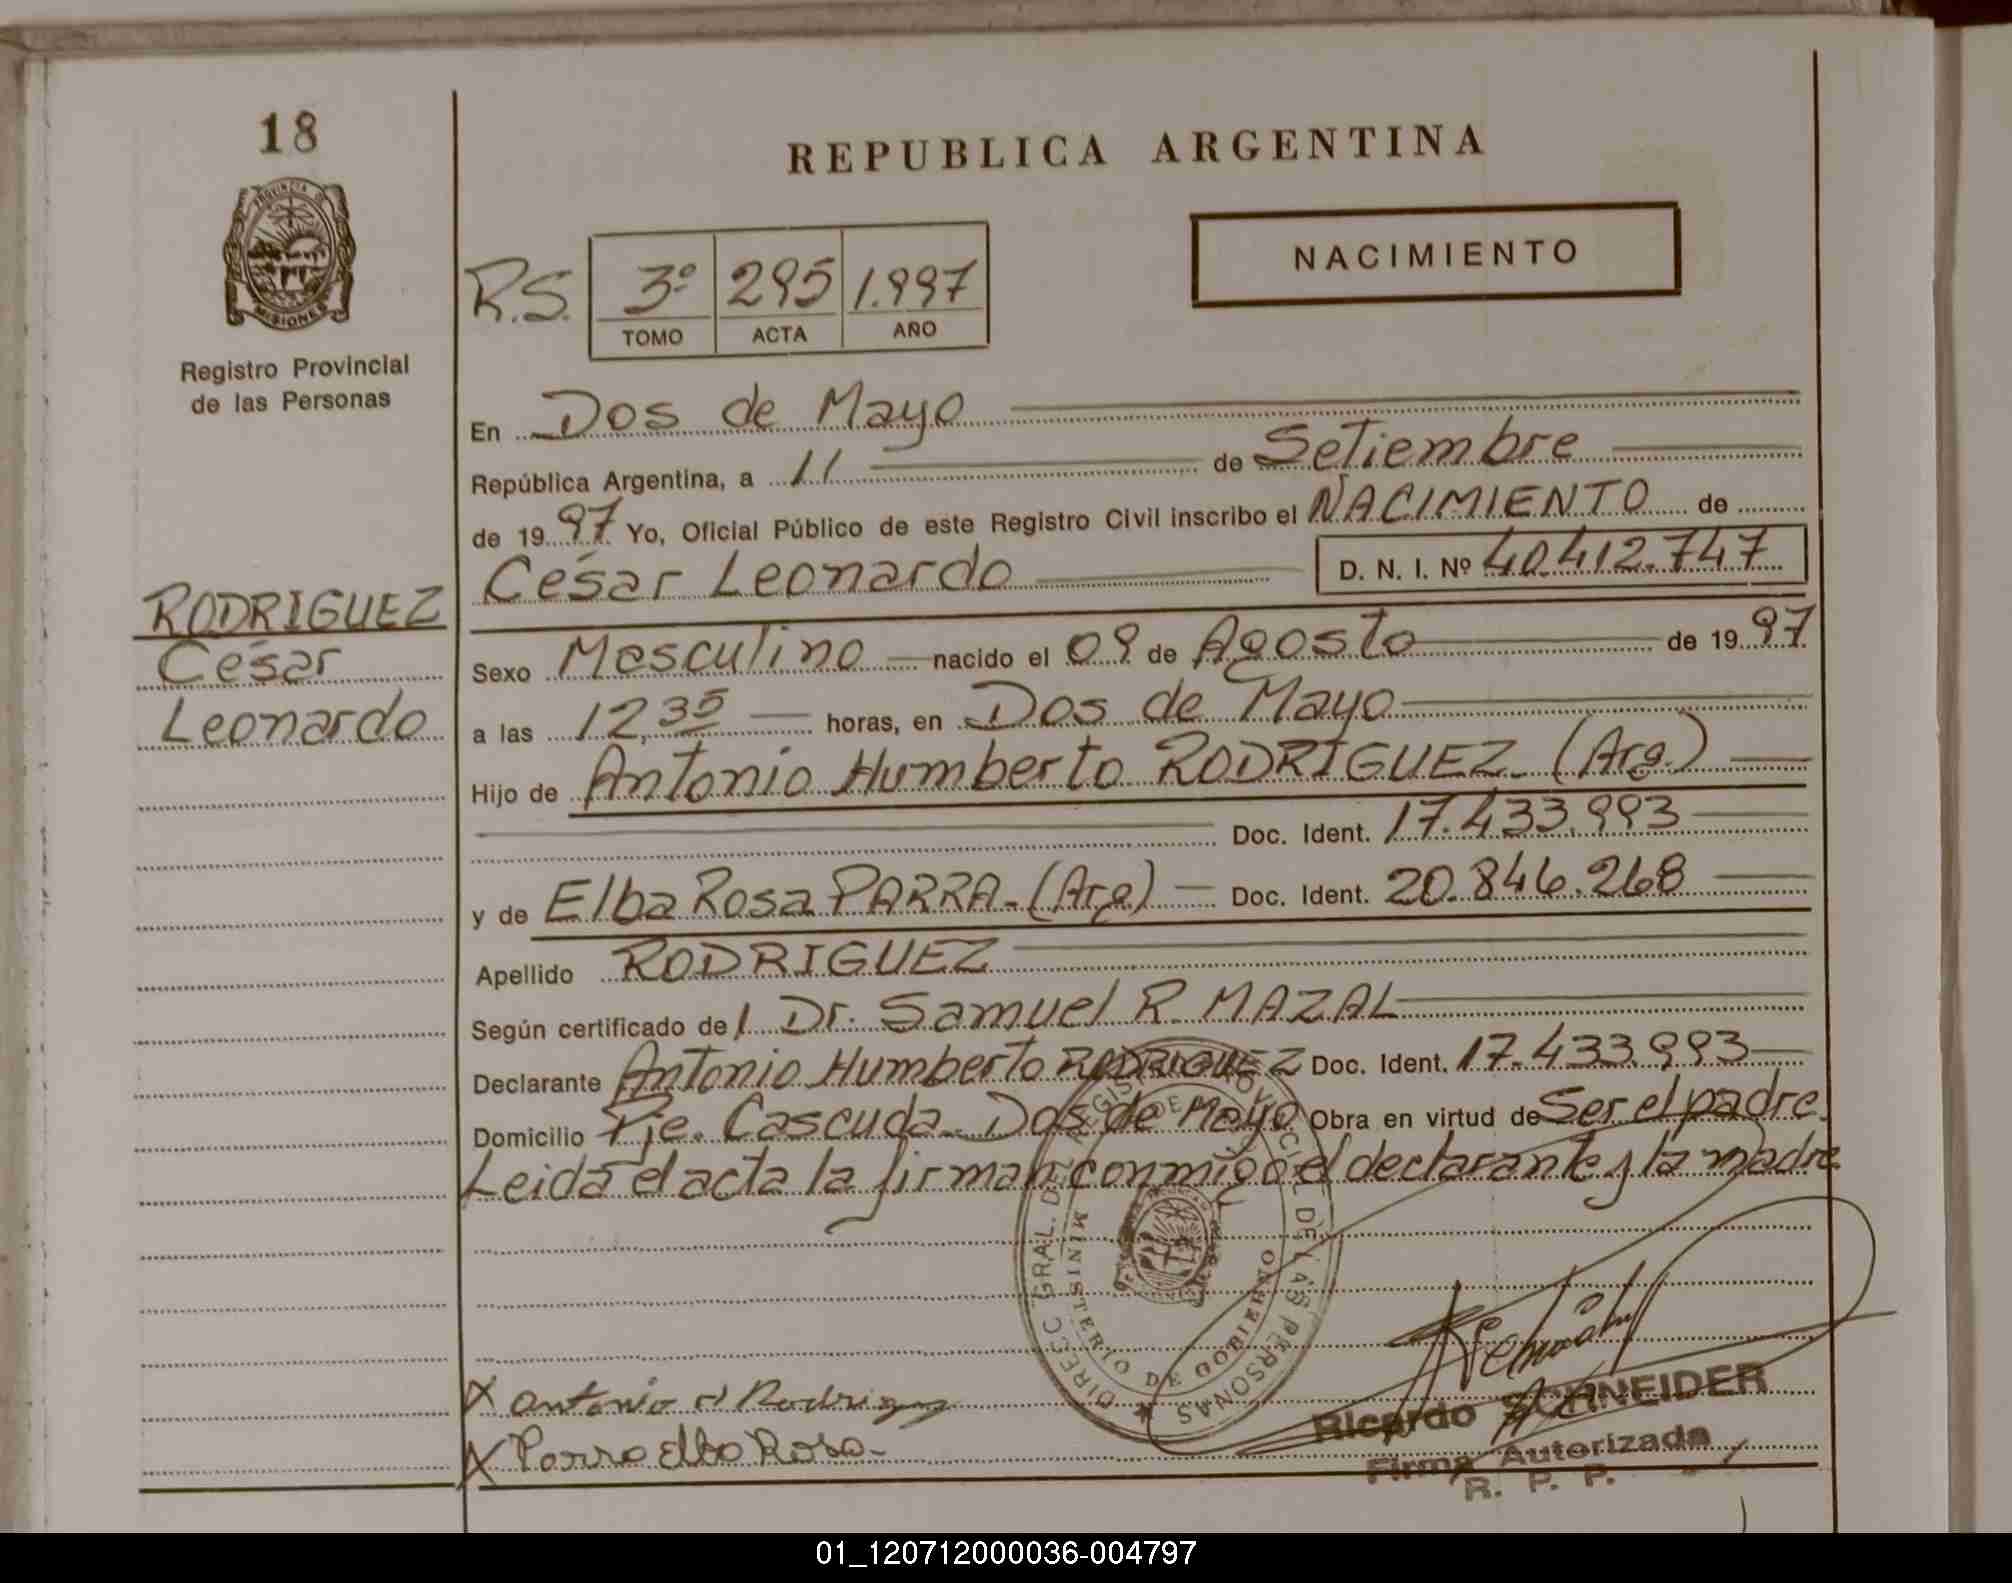 18
REPUBLICA ARGENTINA
PROVINCIA DE
MISIONES
Registro Provincial
de las Personas
NACIMIENTO
R.S. 3º 295 1.997
TOMO ACTA AÑO
En Dos de Mayo
República Argentina, a 11 de Setiembre
de 1997 Yo, Oficial Público de este Registro Civil inscribo el NACIMIENTO de
César Leonardo D. N. I. Nº 40.412.747
RODRIGUEZ
César
Leonardo
Sexo Masculino nacido el 09 de Agosto de 1997
a las 12,35 horas, en Dos de Mayo
Hijo de Antonio Humberto RODRIGUEZ (Arg.)
Doc. Ident. 17.433.993
y de Elba Rosa PARRA - (Arg) Doc. Ident. 20.846.268
Apellido RODRIGUEZ
Según certificado de l Dr. Samuel R. MAZAL
Declarante Antonio Humberto RODRIGUEZ Doc. Ident. 17.433.993
Domicilio Pje. Cascuda - Dos de Mayo Obra en virtud de Ser el padre.
Leida el acta la firman conmigo el declarante y la madre
DIRECC GRAL. DEL REGISTRO PROVINCIAL DE LAS PERSONAS
MINISTERIO DE GOBIERNO
X Antonio H Rodriguez
X Parra Elba Rosa-
Ricardo SCHNEIDER
Firma Autorizada
R. P. P.
01_120712000036-004797